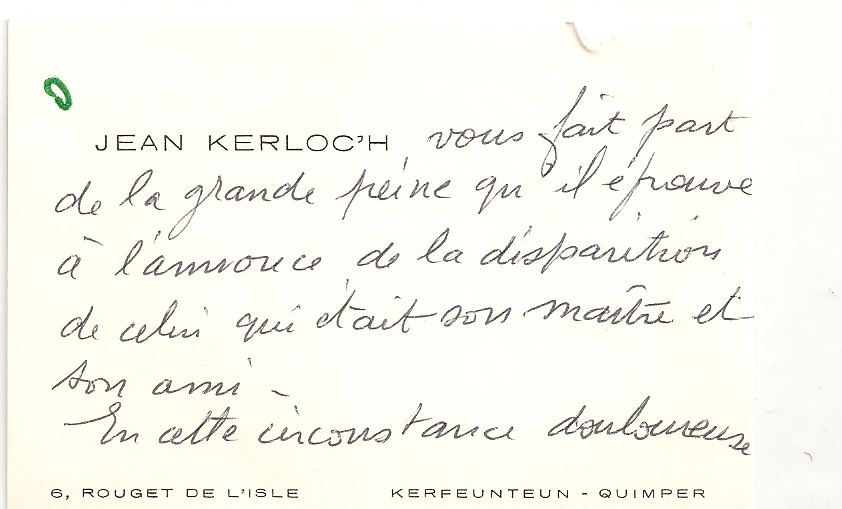 JEAN KERLOC'H vous fait part
de la grande peine qu'il éprouve
à l'annonce de la disparition
de celui qui était son maître et
son ami -
En cette circonstance douloureuse
6, ROUGET DE L'ISLE KERFEUNTEUN - QUIMPER